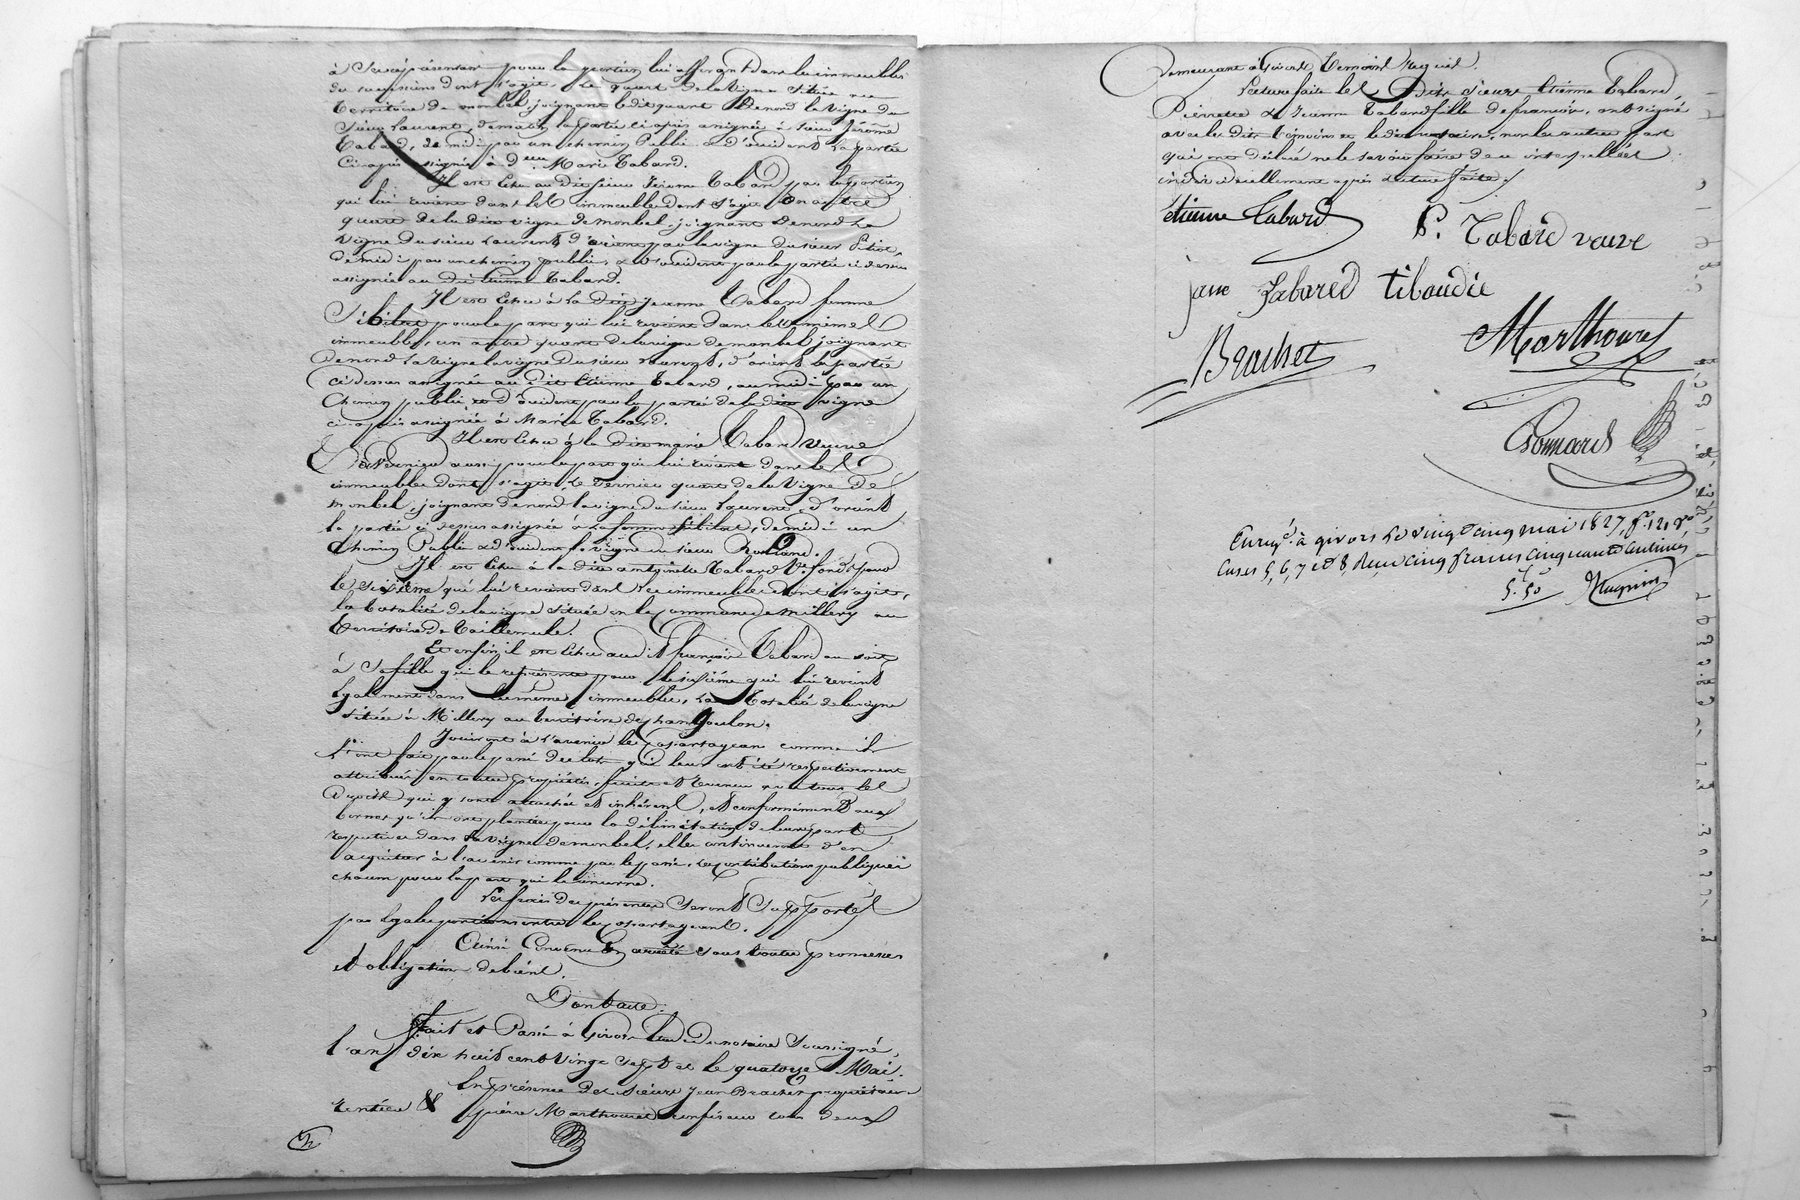 à Sa représentant pour la portion lui afférant dans les immeubles
des successions dont s'agit. Le quart de la Vigne située au
territoire de monbel, joignant le dit quart de nord la vigne du
Sieur Laurent, de matin la partie ci après assignée à Sieur Jérome
Tabard, de midi par un chemin Public et d'occident la partie
Ci-après assignée à d.elle Marie Tabard.
Il est Echu au dit Sieur Jérome Tabard pour la portion
qui lui revient dans les immeubles dont s'agit un autre
quart de la dite vigne de monbel, joignant de nord La
vigne du sieur Laurent, d'orient par la vigne du sieur Petit,
de midi par un chemin public, et d'occident par la partie ci dessus
assignée au dit Etienne Tabard.
Il est Echu à La dite Jeanne Tabard femme
Sibilat pour la part qui lui revient dans les mêmes
immeubles, un autre quart de la vigne de monbel joignant
de nord la vigne la vigne du sieur Laurent, d'orient la partie
ci dessus assignée au dit Etienne Tabard, au midi par un
Chemin public et d'occident par la partie de la dite vigne
ci-après assignée à Marie Tabard.
Il est Echu à la dite marie Tabard veuve
aussi pour la part qui lui revient dans les
immeubles dont s'agit, Le dernier quart de la Vigne de
monbel, joignant de nord la vigne du sieur Laurent, d'orient
la partie ci dessus assignée à La femme Sibilat, de midi un
Chemin Public et d'occident la vigne du sieur
Il est Echu à la dite antoinette Tabard V.e pour
le sixième qui lui revient dans les immeubles dont s'agit,
la totalité de la vigne située en la Commune de Millery au
territoire de Taillemule.
Et enfin il est Echu au dit françois Tabard ou soit
à Sa fille qui le représente pour le sixième qui lui revient
Egalement dans les mêmes immeubles, La Totalité de la vigne
située à Millery au territoire de
Jouiront à l'avenir les Copartageans comme ils
l'ont fait par le passé des lots qui leur ont été respectivement
attribués en toute propriété, fruits et Revenus avec tous les
droits qui y sont attachés et inhérens, et conformément aux
bornes qu'ils ont plantées pour la délimitation de leurs parts
respectives dans La vigne de monbel, elles continueront d'en
acquitter à l'avenir comme par le passé, les contributions publiques
chacun pour la part qui le concerne.
Les frais des présentes Seront Supportés
par égales portions entre les Copartageans.
Ainsi Convenu et arrêté sous toutes promesses
et obligation de biens.
Dont acte.
Fait et Passé à Givors Etude du notaire Soussigné,
l'an dix huit cent vingt Sept et le quatorze Mai.
En présence des Sieurs Jean Brachet propriétaire
rentier & pierre Marthoud confiseur tous deux
Demeurant à Givors Témoins requis.
Lecture faite les dits Sieurs Etienne Tabard,
Pierrette & Jeanne Tabard fille de françois, ont signé
avec les dits témoins et le dit notaire, non les autres part
qui ont déclaré ne le savoir faire de ce interpellées
individuellement après Lecture faite./
étienne Tabard
P. Tabard veuve
jane Tabared tibaudie
Brachet
Marthoud
Enreg.é à givors le vingt cinq mai 1827, f.o 121 v.o
Cases 5, 6, 7 et 8, Reçu cinq francs cinquante centimes
5.f 50